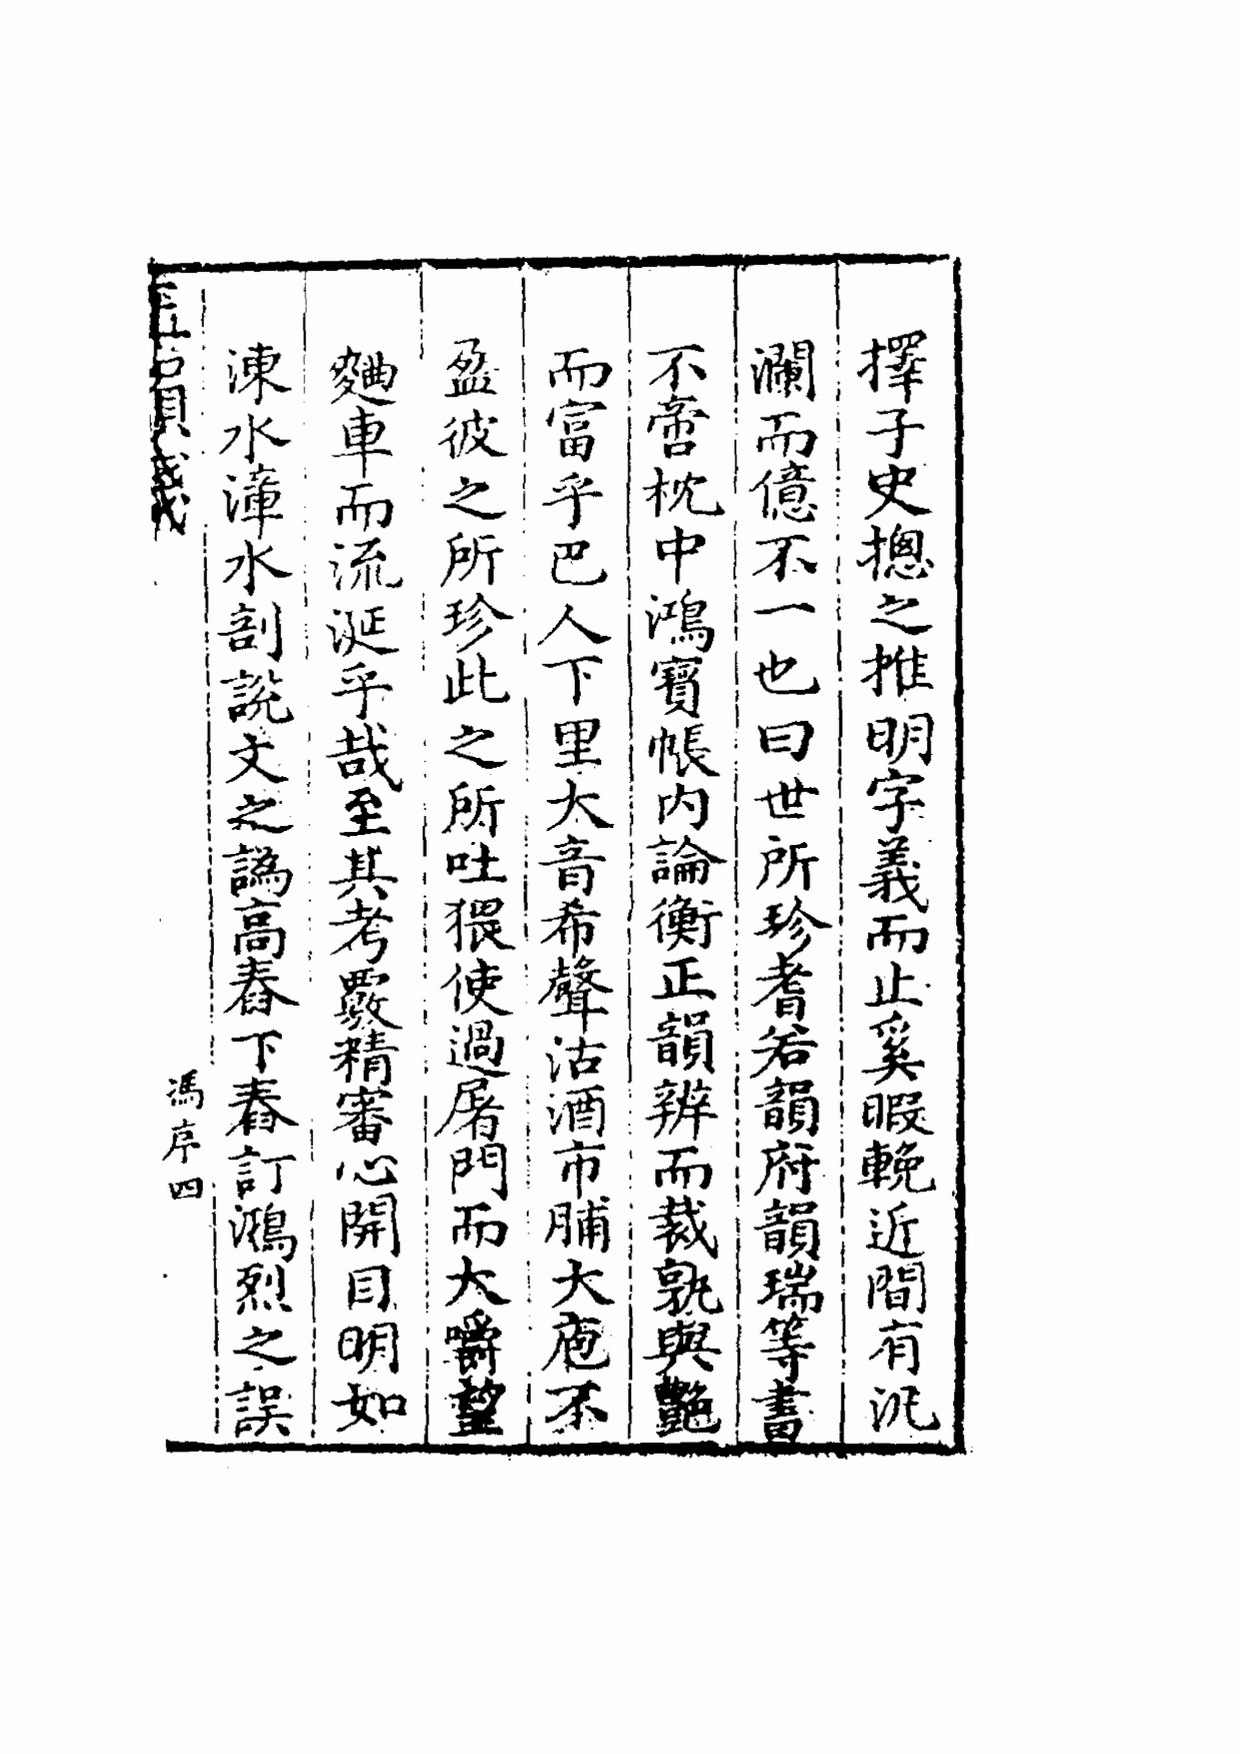 擇子史摠之推明字義而止奚暇輓近間有汎
瀾而億不一也曰世所珍耆若韻府韻瑞等書
不啻枕中鴻寳帳內論衡正韻辨而裁孰與艷
而富乎巴人下里大音希聲沽酒市脯大庖不
盈彼之所珍此之所吐猥使過屠門而大嚼望
麯車而流涎乎哉至其考覈精審心開目明如
涷水漳水剖說文之譌高舂下舂訂鴻烈之誤
馮序四